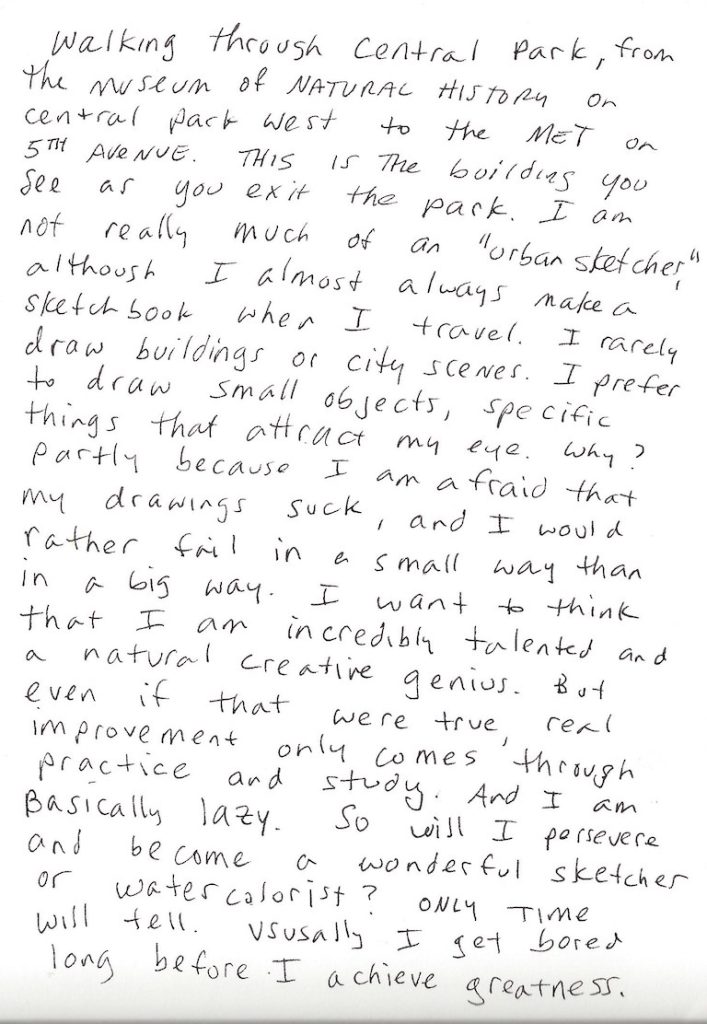 Walking through Central Park, from
the museum of NATURAL HISTORY on
central park west to the MET on
5TH AVENUE. THIS IS The building you
See as you exit the park. I am
not really much of an "urban sketcher,"
although I almost always make a
sketchbook when I travel. I rarely
draw buildings or city scenes. I prefer
to draw small objects, specific
things that attract my eye. Why?
Partly because I am afraid that
my drawings suck, and I would
rather fail in a small way than
in a big way. I want to think
that I am incredibly talented and
a natural creative genius. But
even if that were true, real
improvement only comes through
practice and study. And I am
Basically lazy. So will I persevere
and become a wonderful sketcher
or watercolorist? ONLY TIME
will tell. Ususally I get bored
long before I achieve greatness.